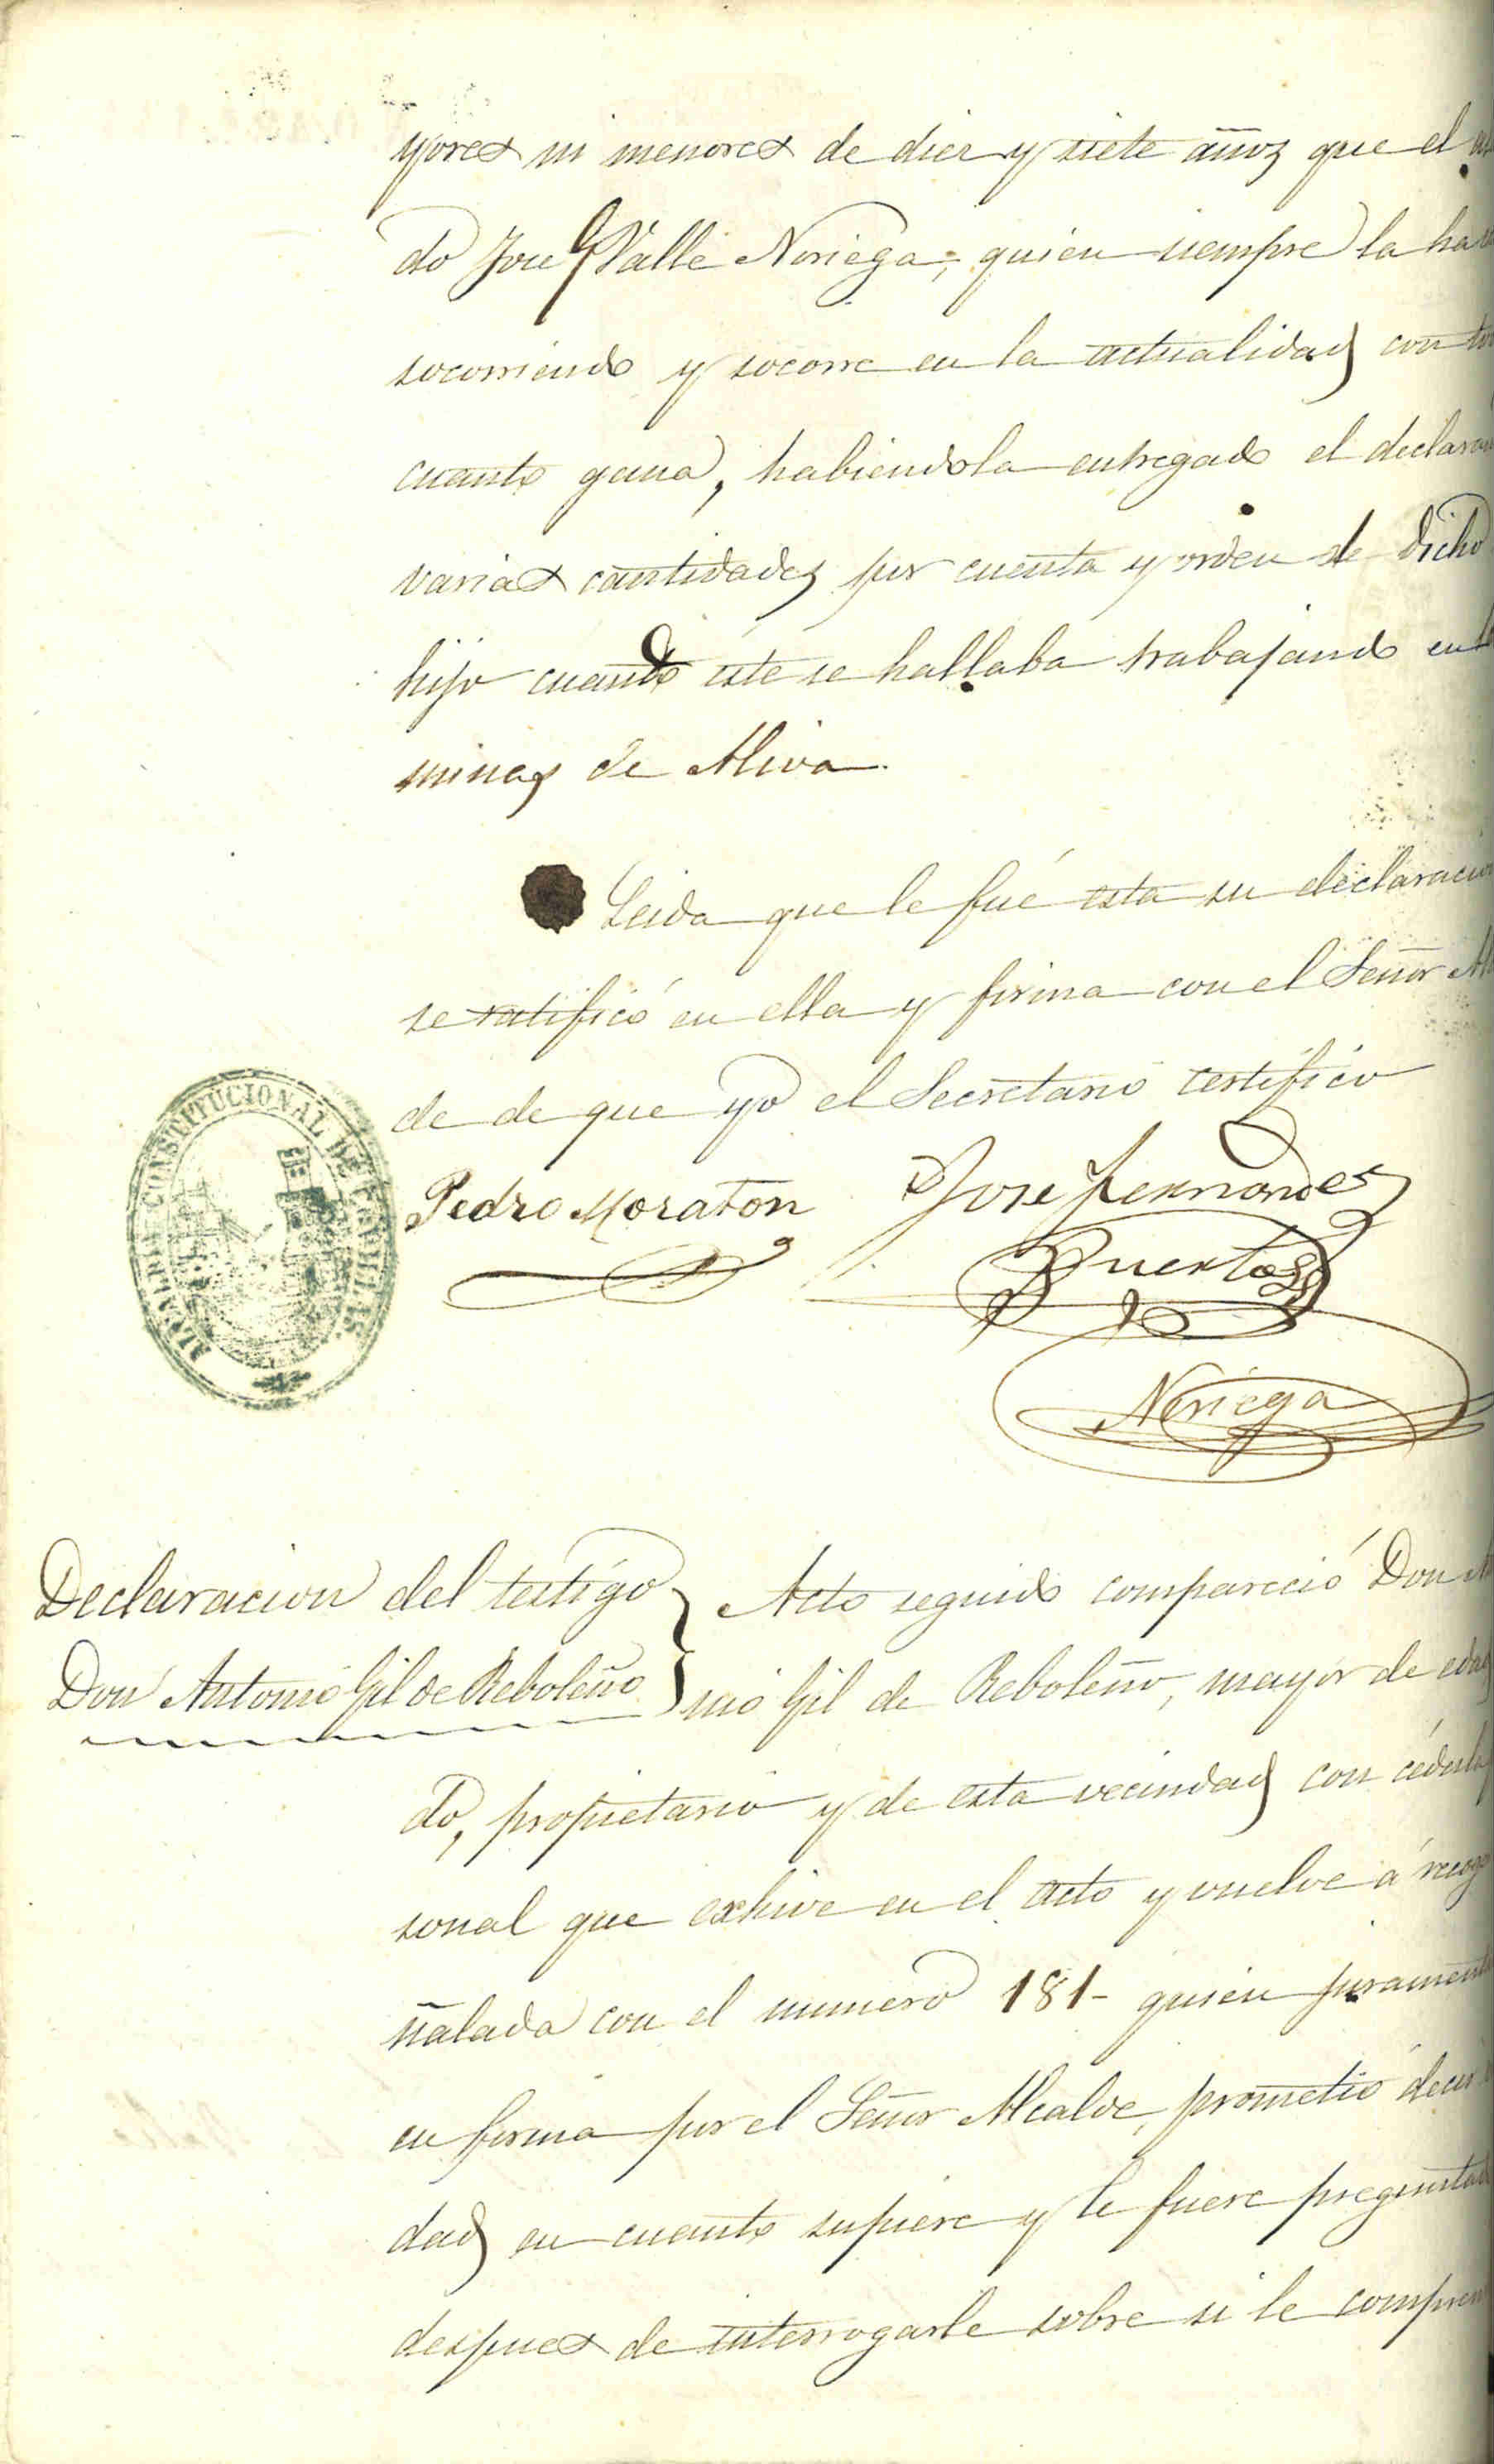 yores ni menores de diez y siete años que el
do Jose Valle Noriega, quien siempre la ha
socorriendo y socorre en la actualidad con to
cuanto gana, habiendola entregado el declaran
varias cantidades por cuenta y orden de dicho
hijo cuando éste se hallaba trabajando en
minas de Aliva.
Leida que le fué esta su declaracion
se ratificó en ella y firma con el Señor Al
de de que yo el Secretario certifico
ALCALDIA CONSTITUCIONAL DE
Pedro Moraton
Jose Fernandez
Puertas
Noriega
Declaracion del testigo
Don Antonio Gil de Reboleño
Acto seguido compareció Don
nio Gil de Reboleño, mayor de edad
do, propietario y de esta vecindad con cédula
sonal que exhive en el acto y vuelve á recog
ñalada con el numero 181- quien juramenta
en forma por el Señor Alcalde, prometió decir
dad en cuanto supiere y le fuere preguntad
despues de interrogarle sobre si le compren